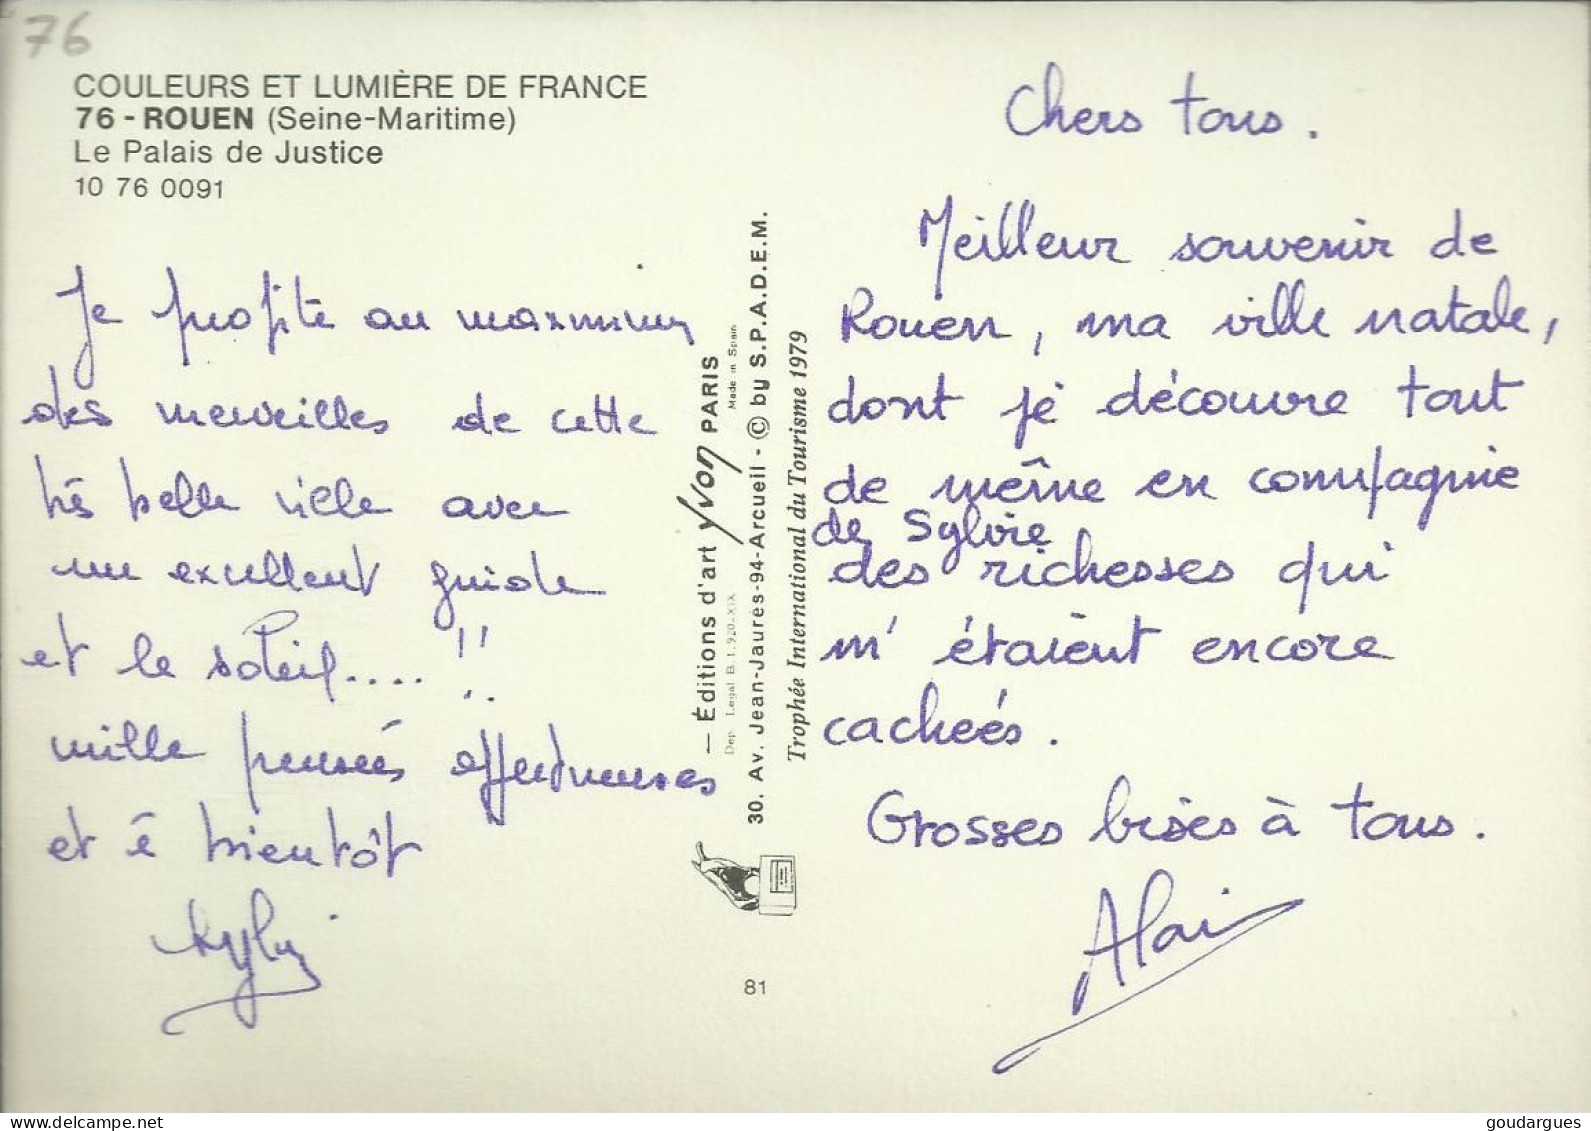 76
COULEURS ET LUMIÈRE DE FRANCE
76 - ROUEN (Seine-Maritime)
Le Palais de Justice
10 76 0091
Je profite au maximum
des merveilles de cette
très belle ville avec
un excellent guide
et le soleil.... !!
mille pensées affectueuses
et à bientôt
Sylvie
— Éditions d'art Yvon PARIS
Made in Spain
Dep. Legal B. 1.920-XIX
30. Av. Jean-Jaurès-94-Arcueil - © by S.P.A.D.E.M.
Trophée International du Tourisme 1979
81
Chers tous.
Meilleur souvenir de
Rouen, ma ville natale,
dont je découvre tout
de même en compagnie
de Sylvie
des richesses qui
m'étaient encore
cachées.
Grosses bises à tous.
Alain
delcampe.net
goudargues